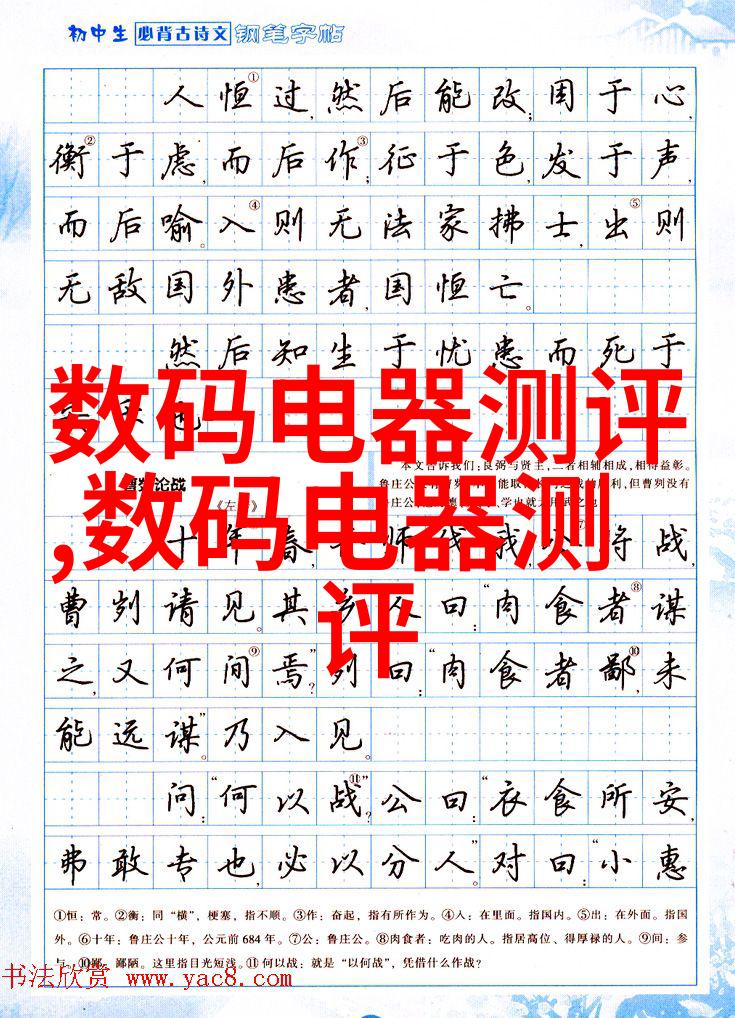 初中生 必背古诗文 钢笔字帖
人恒①过，然后能改；困于心，
衡②于虑，而后作③；征于色，发于声，
而后喻。入④则无法家拂士，出⑤则
无敌国外患者，国恒亡。
然后知生于忧患而死于
也
数码电器测评
,数码电器测
评
本文告诉我们：良弼与贤主，二者相辅相成，相得益彰。
论战
《左
鲁庄公
利，但曹刿没有
十年春，
师伐我，公将战，
曹刿请见。其乡人曰：“肉食者⑧谋
之，又何间⑨焉？”刿曰：“肉食者鄙⑩，未
能远谋。”乃入见。
问：“何以战⑪？”公曰：“衣食所安，
弗敢专也，必以分人。”对曰：“小惠
①恒：常。②衡：同“横”，梗塞，指不顺。③作：奋起，指有所作为。④入：在里面。指国内。⑤出：在外面。指国
外。⑥十年：鲁庄公十年，公元前684年。⑦公：鲁庄公。⑧肉食者：吃肉的人。指居高位、得厚禄的人。⑨间：参
与。⑩鄙：鄙陋。这里指目光短浅。⑪何以战：就是“以何战”，凭借什么作战？
书法欣赏 www.yac8.com